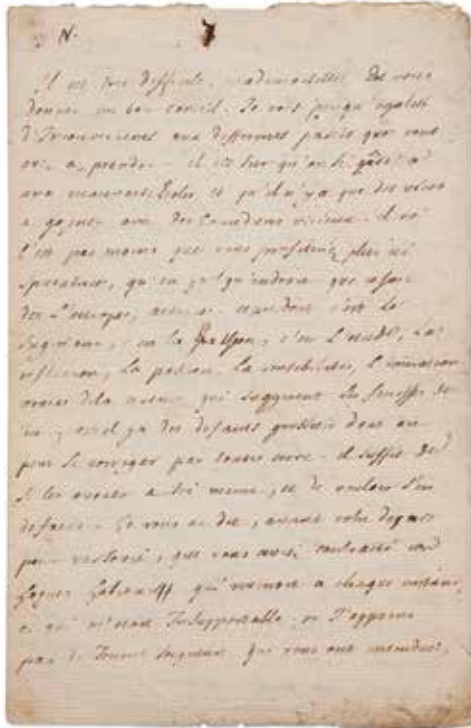 N. 7
il est très difficile, mademoiselle, de vous
donner un bon conseil. Je vois presqu'egalité
d'Inconvenients aux differents partis que vous
avez a prendre. il est sur qu'on se gâte a
une mauvaise Ecole et qu'il n'y a que des vices
a gagner avec des Comediens vicieux. il ne
l'est pas moins que vous profiterez plus ici
spectatrice, qu'en quelqu'endroit que
de l'europe, actrice. cependant c'est le
jugement, c'est la raison, c'est l'etude, la
reflexion, la passion, la sensibilité, l'imitation
vraie de la nature, qui suggerent les finesses de
jeu; et il y a des defauts grossiers dont on
peut se corriger par toute terre. il suffit de
se les avouer a soi meme, et de vouloir s'en
defaire. Je vous ai dit, avant votre depart
pour varsovie, que vous aviez contracté un
hoquet habituel qui revenoit a chaque instant,
et qui m'etoit Insupportable, et J'apprens
par de Jeunes seigneurs qui vous ont entendue,